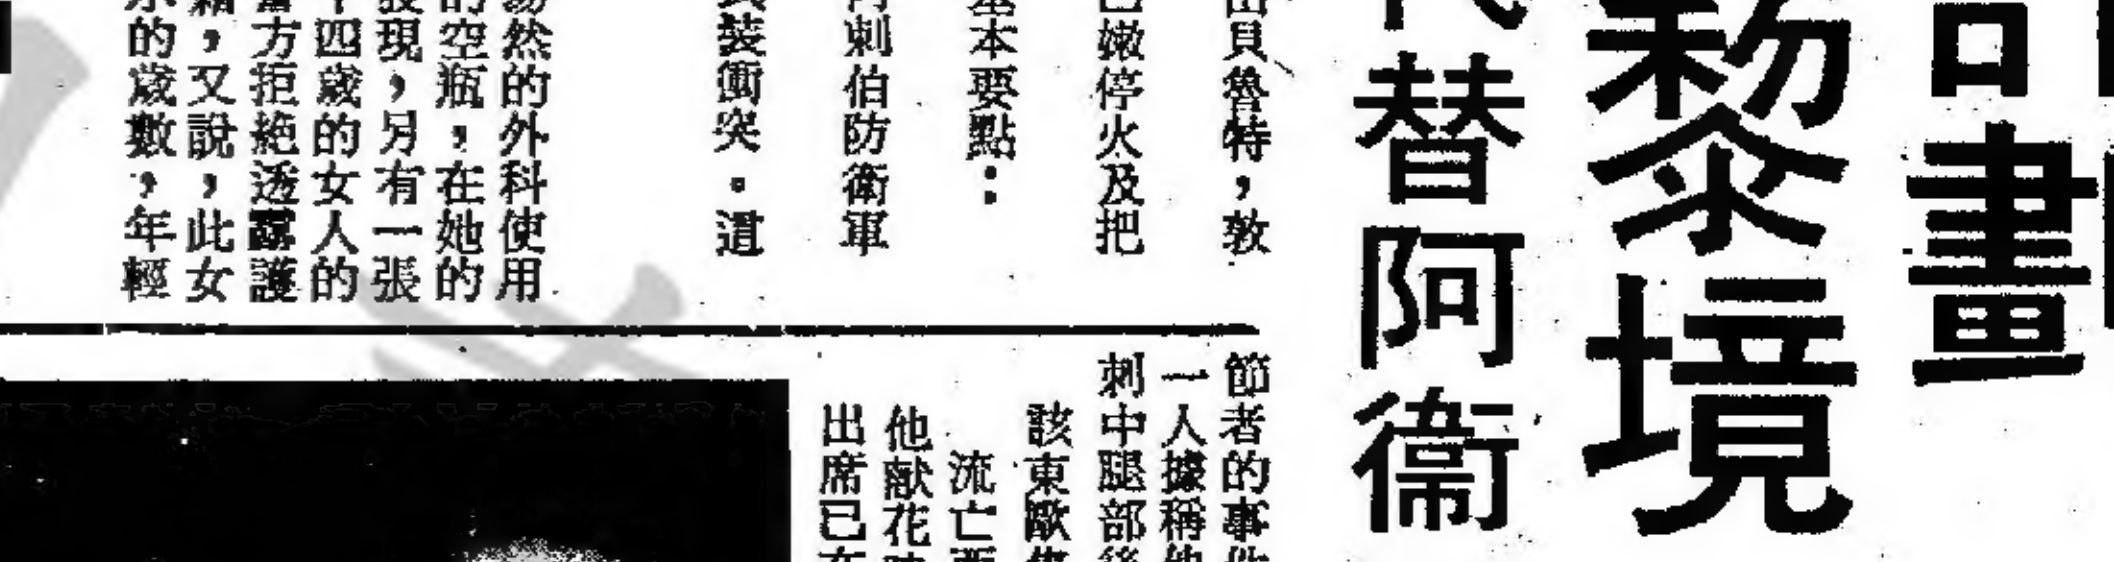 計畫
黎境
代替阿衛
出貝魯特，敦
已嫩停火及把
基本要點：
阿剌伯防衛軍
武裝衝突。這
湯然的外科使用
的空瓶，在她的
發現，另有一張
十四歲的女人的
警方拒絶透露護
霜，又說，此女
示的歲數，年輕
節者的事件
一人據稱他
刺中腿部後
該東歐集
流亡西
他献花時
出席已在